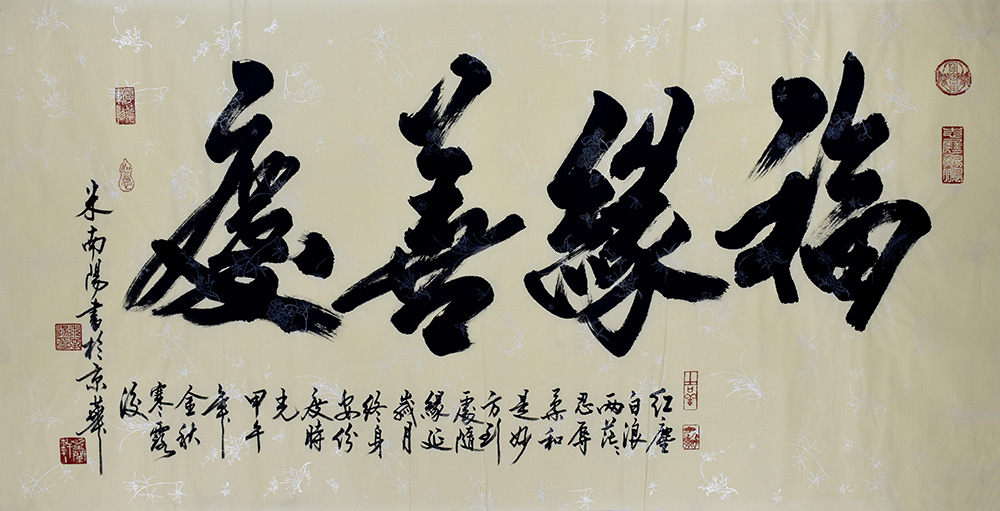 福緣善慶
红塵
白浪
两茫々
忍辱
柔和
是妙
方到
處隨
緣延
歲月
终身
安份
度時
光
甲午
年
金秋
寒露
後
米南陽書於京華